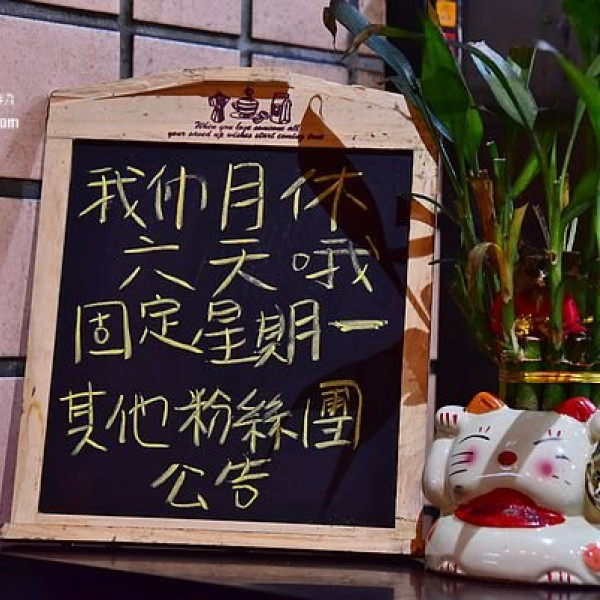 When you love someone all
your saved up wishes start coming true
我们月休
六天哦
固定星期一
其他粉絲團
公告